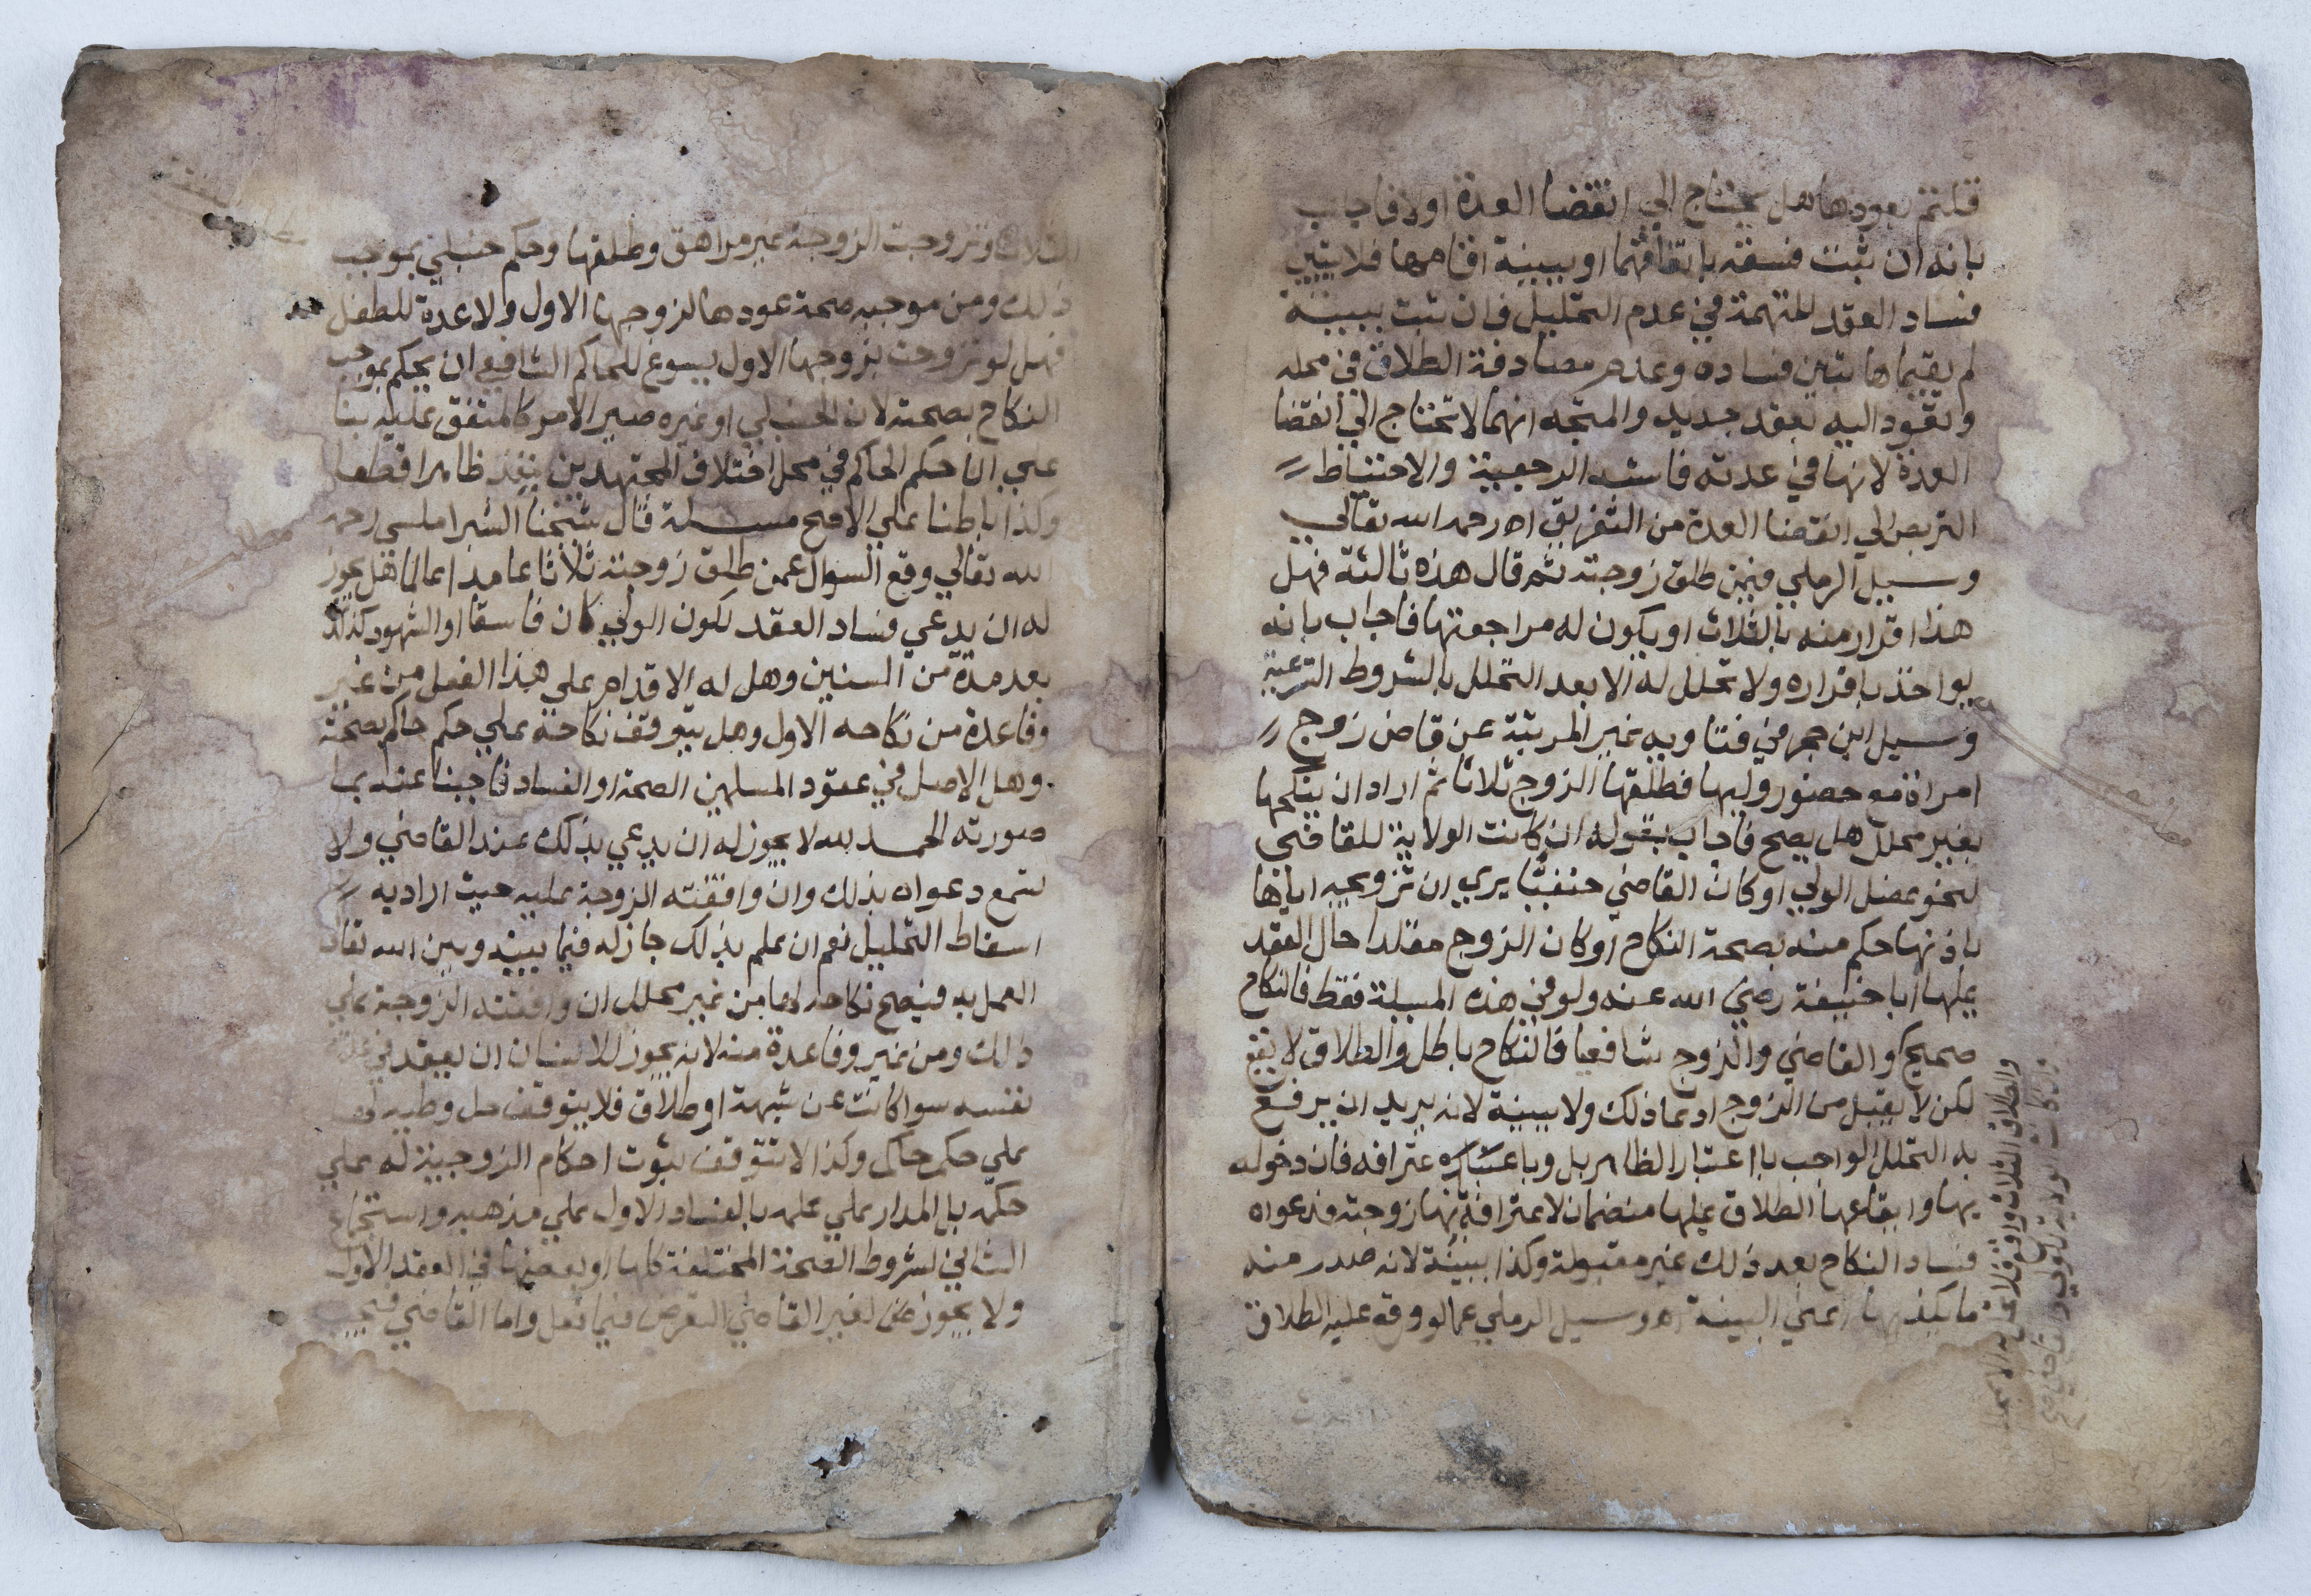 قلتم بعودها هل يحتاج الي انقضا العدة اولا فاجاب
بانه ان ثبت فسقه باتفاقهما او ببينة اقامها فلا يتبين
فساد العقد للتهمة في عدم التحليل وان ثبت ببينة
لم يقيماها تبين فساده وعدم مصادفة الطلاق في محله
وتعود اليه بعقد جديد والمتجه انهما لا تحتاج الي انقضا
العدة لانها في عدته فاشبه الرجعية والاحتياط
التربص الي انقضا العدة من التفريق اه رحمه الله تعالي
وسيل الرملي فيمن طلق زوجته ثم قال هذه ثالثة فهل
هذا اقرار منه بالثلاث او يكون له مراجعتها فاجاب بانه
يواخذ باقراره ولا تحلل له الا بعد التحلل بالشروط الشرعية
وسيل ابن حجر في فتاويه غير المرتبة عن قاض زوج
امراة مع حضور وليها فطلقها الزوج ثلاثا ثم اراد ان ينكحها
بغير محلل هل يصح فاجاب بقوله ان كانت الولاية للقاضي
لنحو عضل الولي او كان القاضي حنفيا يري ان تزويجه اياها
باذنها حكم منه بصحة النكاح او كان الزوج مقلدا حال العقد
عليها ابا حنيفة رضي الله عنه ولو في هذه المسيلة فقط فالنكاح
صحيح والقاضي والزوج شافعيا فالنكاح باطل والطلاق لا يقع
لكن لا يقبل من الزوج ادعا ذلك ولا ببينة لانه يريد ان يرفع
به التحلل الواجب باعتبار الظاهر بل وباعتبار اعترافه فان دخوله
بها وايقاعها الطلاق عليها متضمان لاعترافه بانها زوجته فدعواه
فساد النكاح بعد ذلك غير مقبولة وكذا ببينة لانه صدر منه
ما يكذبها اعني البينة اه وسيل الرملي عما لو وقع عليه الطلاق
والطلاق الثلاث واقع فلا
وان كانت الولاية للولي والقاضي
الثلاث وتزوجت الزوجة غير مراهق وطلقها وحكم حنبلي بموجب
ذلك ومن موجبه صحة عودها لزوجها الاول ولا عدة للطفل
فهل لو تزوجت بزوجها الاول يسوغ للحاكم الشافعي ان يحكم بموجب
النكاح بصحته لان الحنبلي او غيره صير الامر كالمتفق عليه بنا
علي ان حكم الحاكم في محل اختلاف المجتهدين ينفذ ظاهرا قطعا
وكذا باطنا علي الاصح مسيلة قال شيخنا الشبراملسي رحمه
الله تعالي وقع السوال عمن طلق زوجته ثلاثا عامدا عالما هل يجوز
له ان يدعي فساد العقد لكون الولي كان فاسقا او الشهود كذلك
بعد مدة من السنين وهل له الاقدام علي هذا الفعل من غير
وفا عدة من نكاحه الاول وهل يتوقف نكاحه علي حكم حاكم بصحته
وهل الاصل في عقود المسلمين الصحة او الفساد فاجبنا عنه بما
صورته الحمد لله لا يجوز له ان يدعي بذلك عند القاضي ولا
تسمع دعواه بذلك وان وافقته الزوجة عليه حيث اراد به
اسقاط التحليل نعم ان علم بذلك جاز له فيما بينه وبين الله تعالي
العمل به فيصح نكاحه لها من غير محلل ان وافقته الزوجة علي
ذلك ومن غير وفا عدة منه لانه يجوز للانسان ان يعقد في عدة
نفسه سوا كانت عن شبهة او طلاق فلا يتوقف حل وطيه لها
علي حكم حاكم وكذا لا يتوقف ثبوت احكام الزوجية له علي
حكمه بل المدار علي علمه بالفساد الاول علي مذهبه واستجماع
الثاني لشروط الصحة المختلفة كلها او بعضها في العقد الاول
ولا يجوز لغير القاضي التعرض فيما فعل واما القاضي فيجب